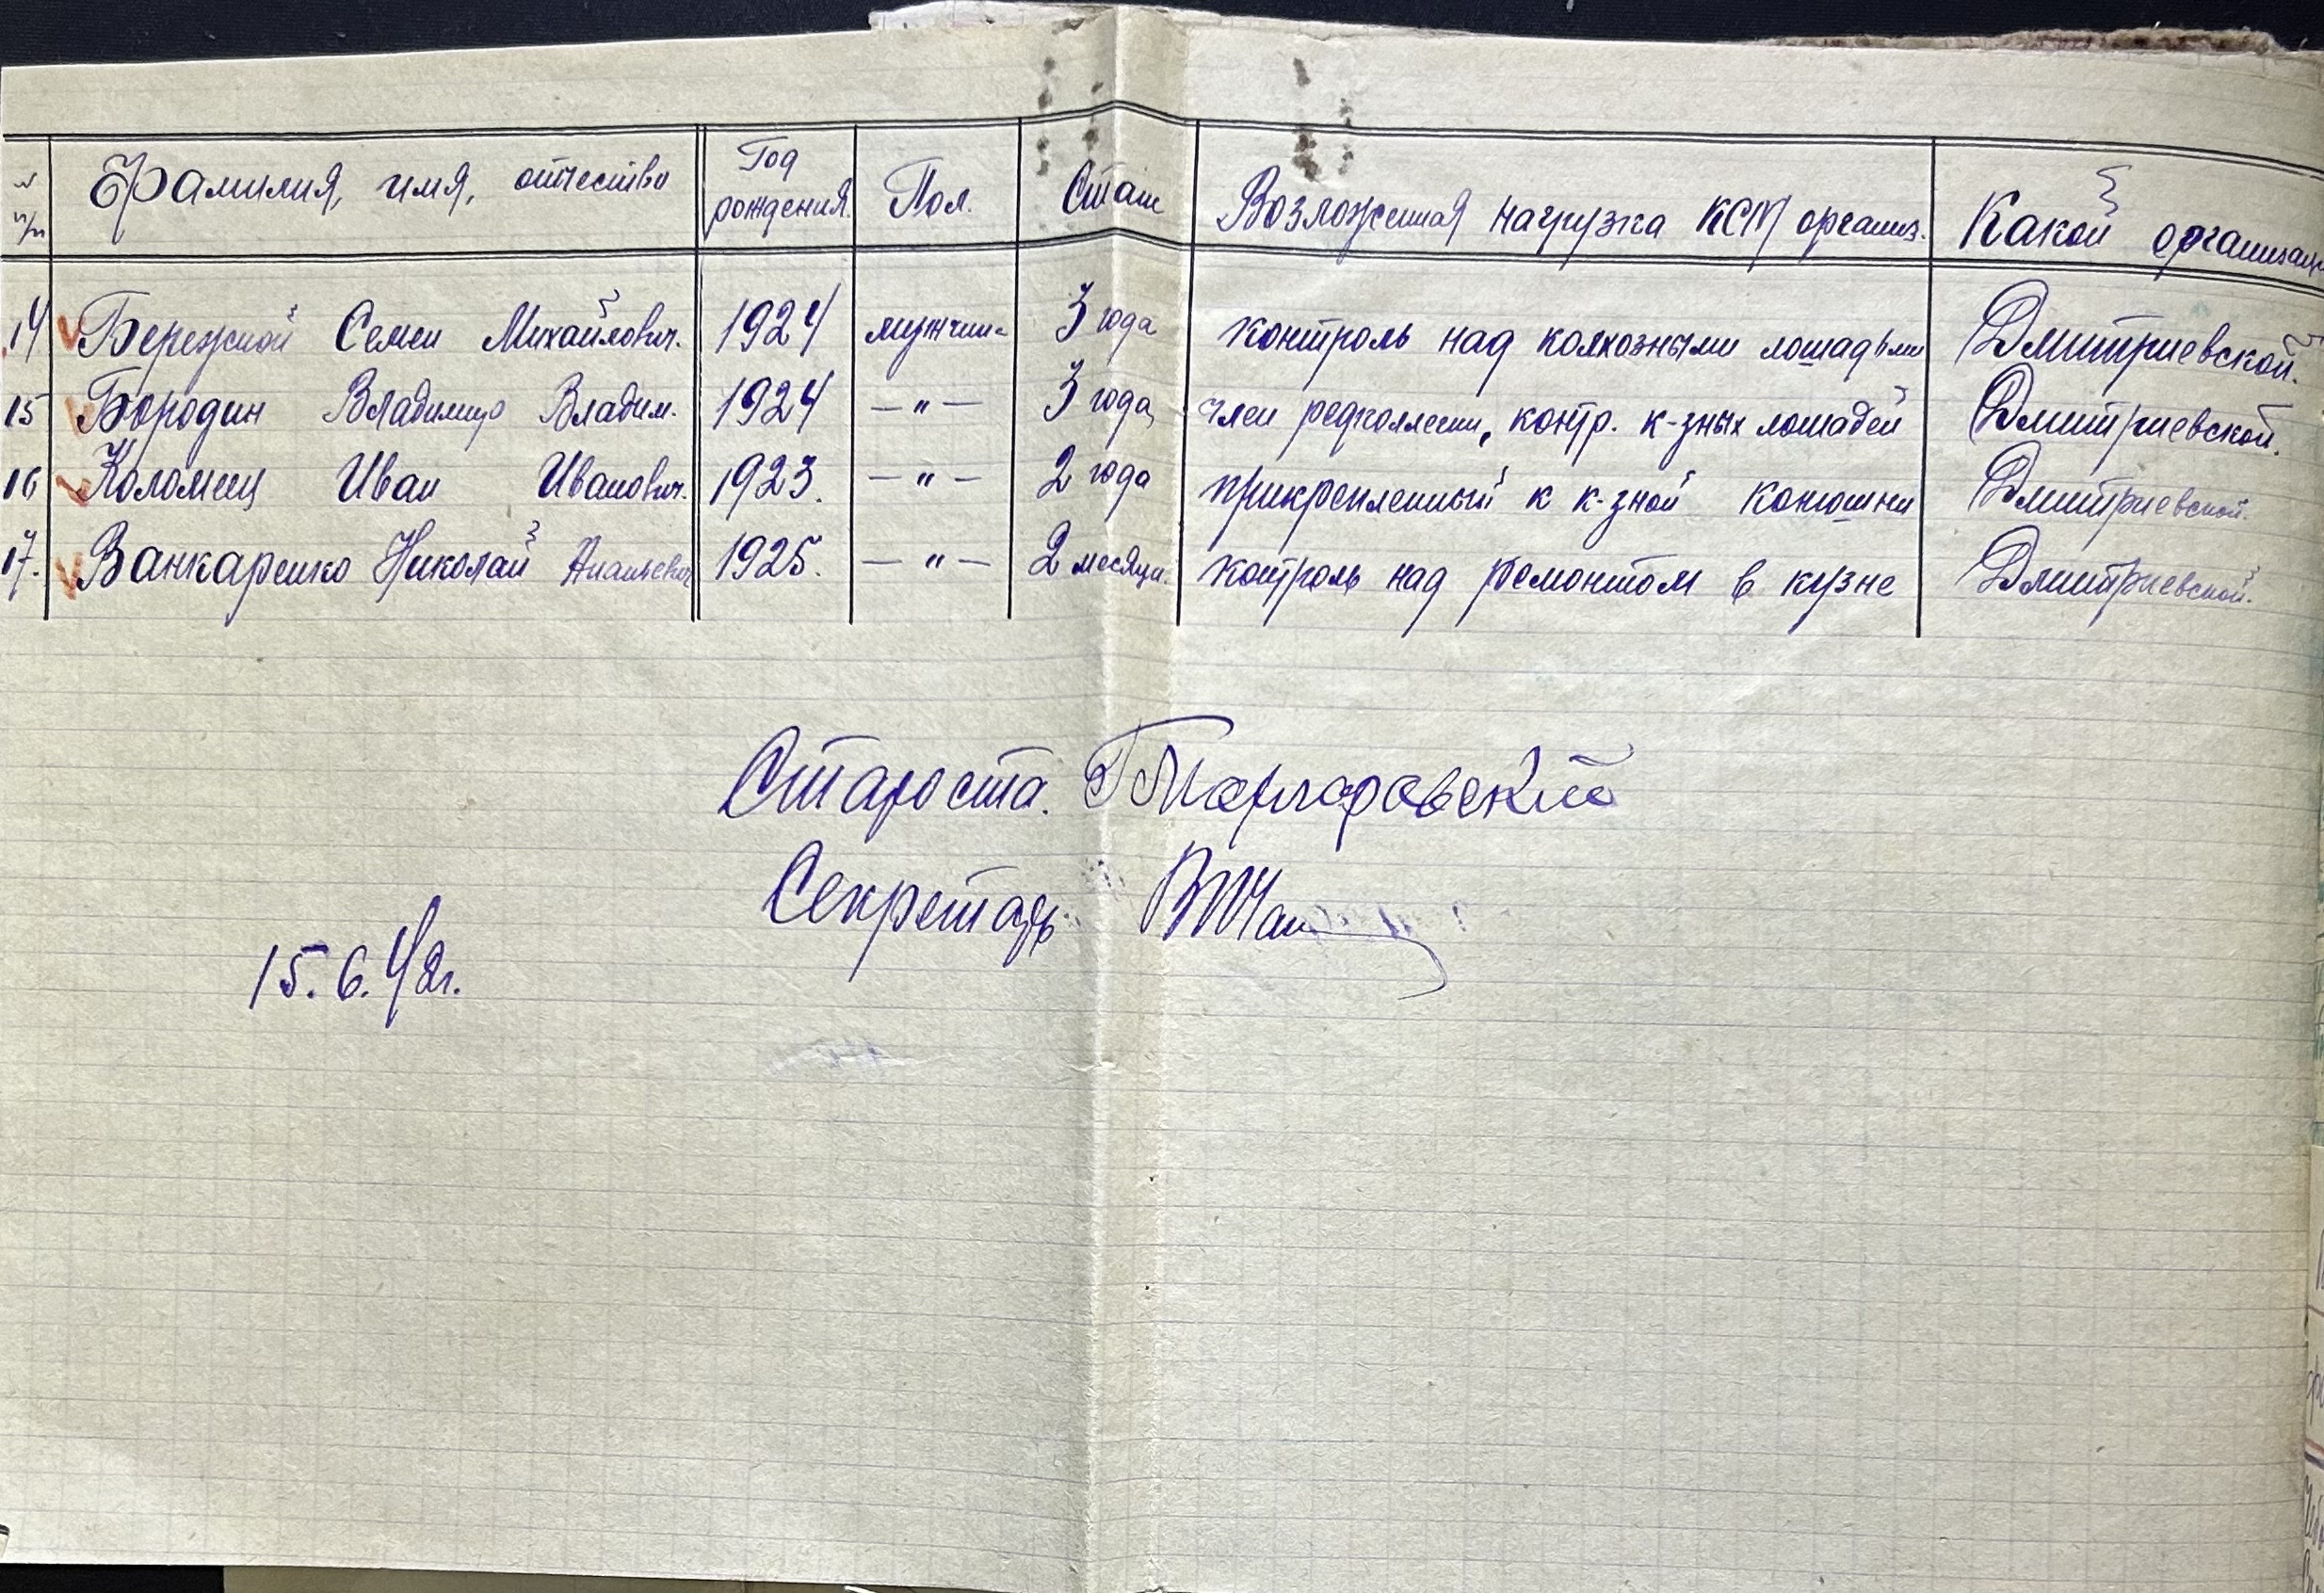 № п/п Фамилия, имя, отчество Год рождения. Пол. Стаж Возложенная нагрузка КСМ организ. Какой организаци
14 Бережной Семен Михайлович. 1924 мужчин 3 года контроль над колхозными лошадьми Дмитриевской.
15 Бородин Владимир Владим. 1924 —"— 3 года член редколлегии, контр. к-зных лошадей Дмитриевской.
16 Коломиец Иван Иванович. 1923. —"— 2 года прикрепленный к к-зной конюшни Дмитриевской.
17. Ванкаренко Николай 1925. —"— 2 месяца. контроль над ремонтом в кузне Дмитриевской.
Староста.
Секретарь
15.6.42г.